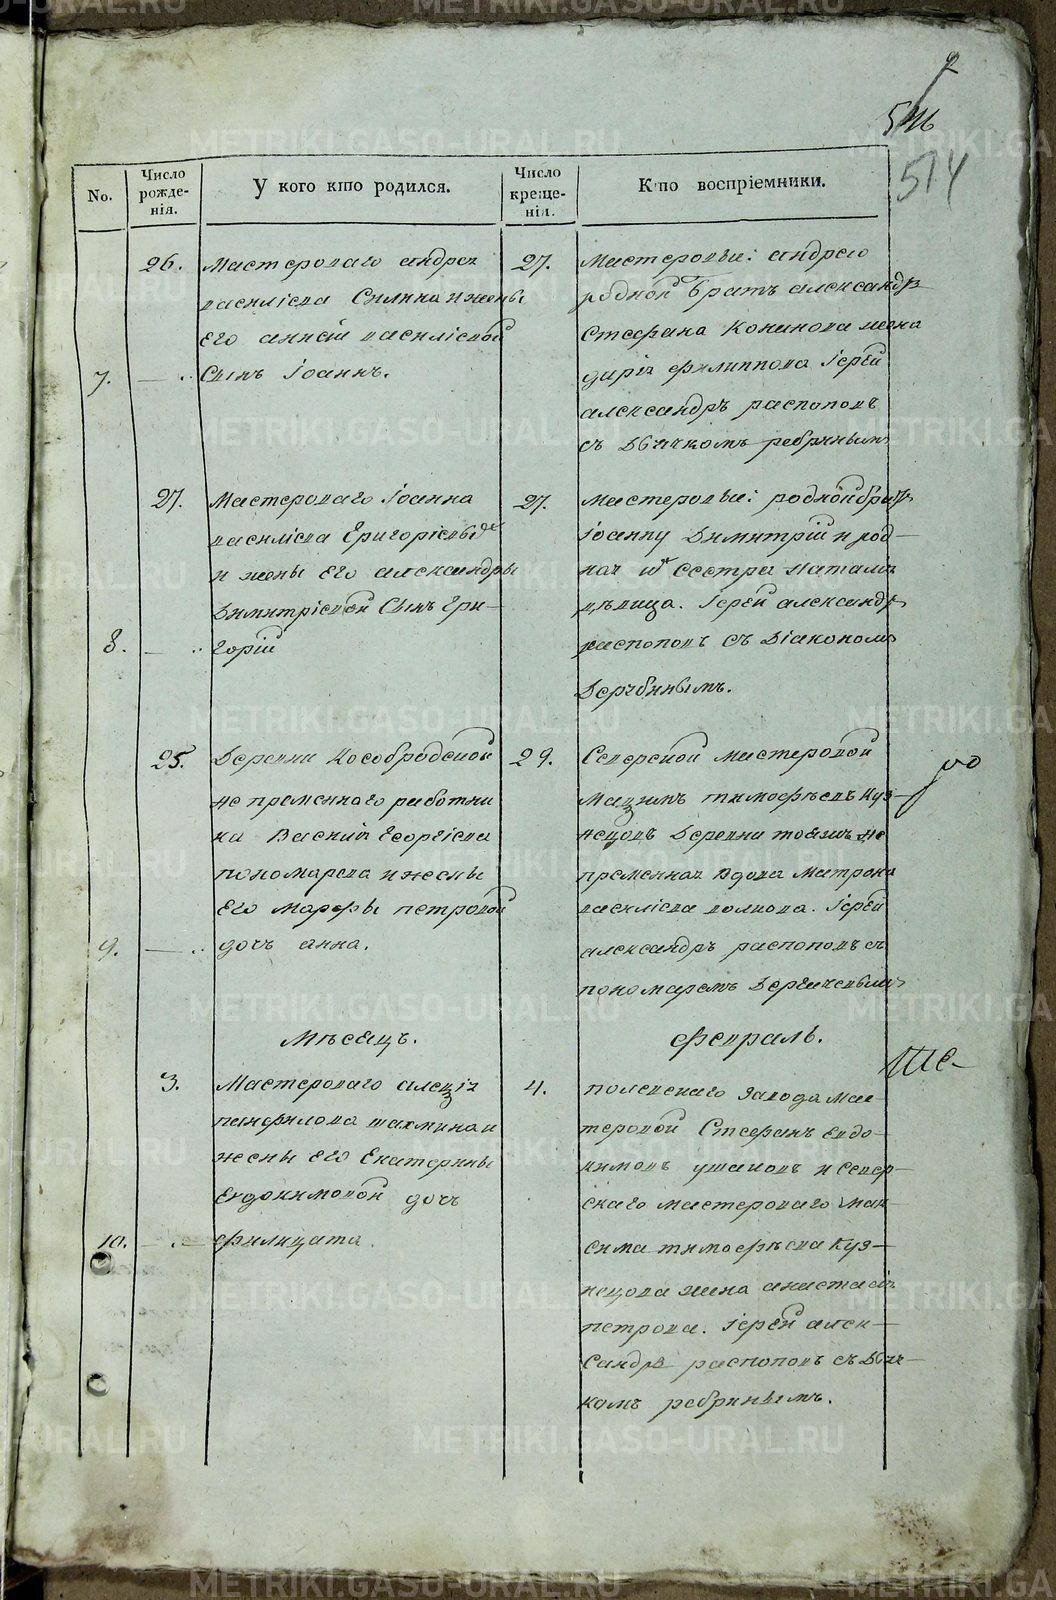 9
514
No.
Число рожде-нія.
У кого кто родился.
Число креще-нія.
Кто воспріемники.
26. Мастероваго андрея
василіева Силина и жены
его анніи василіевой
7. Сынъ Іоаннъ.
27. Мастеровые: андрею
родной братъ александръ
Стефана Конинова жена
дарія филиппова Іерей
александръ распоповъ
съ дьячкомъ ребринымъ
27. Мастероваго Іоанна
василіева Григоріевыхъ
и жены его александры
Димитріевой Сынъ Гри-
8. горій
27. Мастеровые: родной братъ
Іоанну Димитрій и род-
ная Сестра Наталія
дѣвица. Іерей александръ
распоповъ съ Діакономъ
Дерябинымъ.
25. Деревни Кособродской
непременнаго работни
ка Василія Георгіева
пономарева и жены
его Марфы петровой
9. дочь анна.
29. Северской мастеровой
Мазимъ тимофѣевъ куз-
нецовъ деревни тоежъ не
пременная вдова Матрона
василіева волкова. Іерей
александръ распоповъ съ
пономаремъ Дергачевымъ
Мѣсецъ. февраль.
3. Мастероваго алеѯіа
панфилова шахмина и
жены его Екатерины
Евдокимовой дочь
10. филицата
4. полевскаго завода Мас-
теровой Стефанъ евдо-
кимовъ ушаковъ и Север-
скаго мастероваго мак-
сима тимофѣева Куз-
нецова жена анастасія
петрова. Іерей алек-
сандръ распоповъ съ дья-
комъ ребринымъ.
METRIKI.GASO-URAL.RU